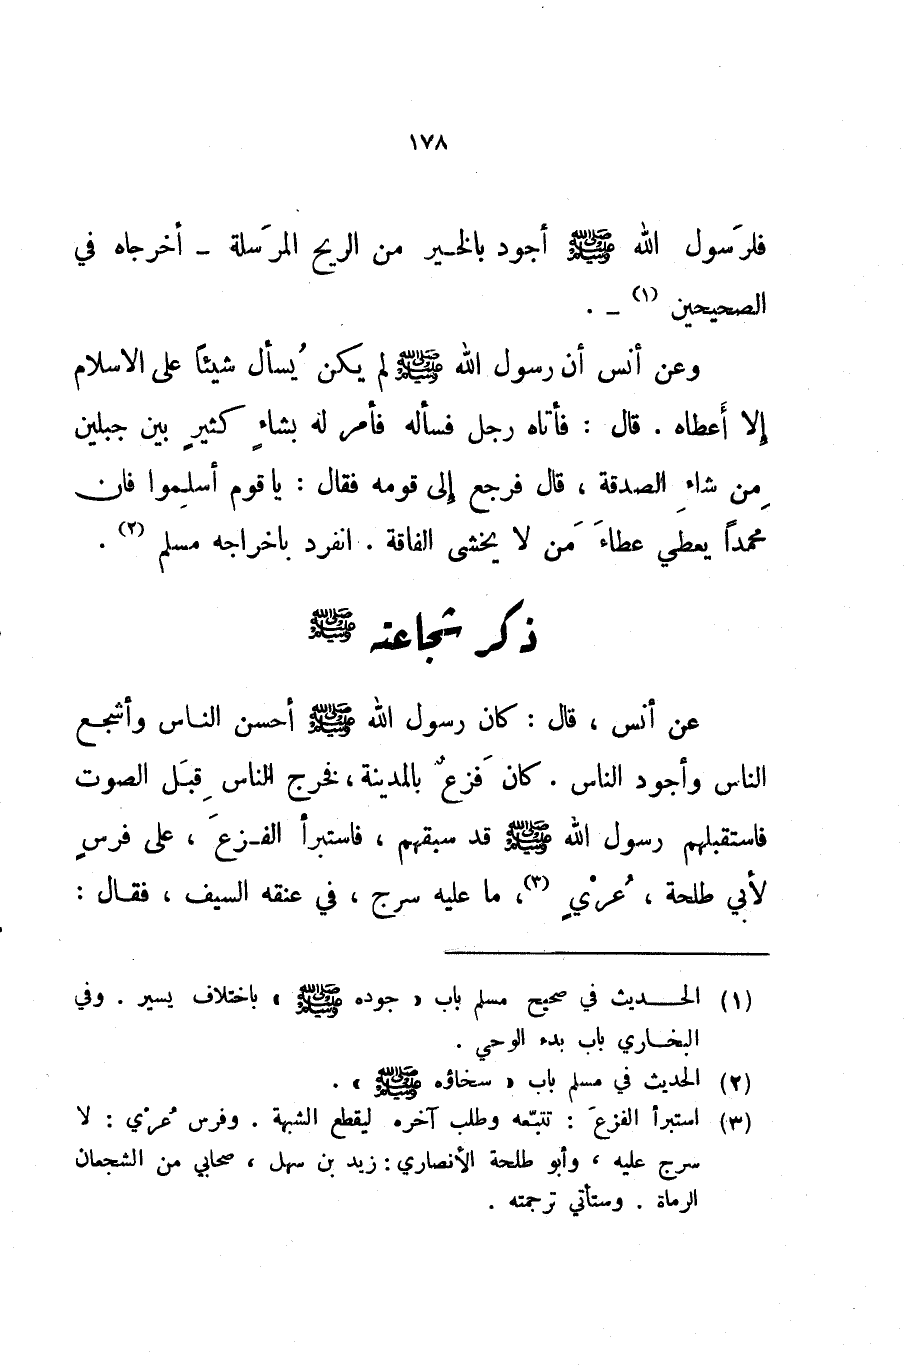 ١٧٨
فلرَسول الله ﷺ أجود بالخير من الريح المرَسلة ـ أخرجاه في
الصحيحين (١) ـ .
وعن أنس أن رسول الله ﷺ لم يكن يُسأل شيئاً على الاسلام
إلا أَعطاه . قال : فأتاه رجل فسأله فأمر له بشاءٍ كثيرٍ بين جبلين
مِن شاءِ الصدقة ، قال فرجع إلى قومه فقال : يا قوم أسلِموا فان
محمداً يعطي عطاءَ مَن لا يخشى الفاقة . انفرد باخراجه مسلم (٢) .
ذكر شجاعته ﷺ
عن أنس ، قال : كان رسول الله ﷺ أحسن الناس وأشجع
الناس وأجود الناس . كان فَزعٌ بالمدينة ، فخرج الناس قِبَل الصوت
فاستقبلهم رسول الله ﷺ قد سبقهم ، فاستبرأ الفزعَ ، على فرسٍ
لأبي طلحة ، عُرْيٍ (٣)، ما عليه سرج ، في عنقه السيف ، فقال :
(١) الحديث في صحيح مسلم باب « جوده ﷺ » باختلاف يسير . وفي
البخاري باب بدء الوحي .
(٢) الحديث في مسلم باب « سخاؤه ﷺ » .
(٣) استبرأ الفزعَ : تتبّعه وطلب آخره ليقطع الشبهة . وفرس عُرْي : لا
سرج عليه ، وأبو طلحة الأنصاري : زيد بن سهل ، صحابي من الشجعان
الرماة . وستأتي ترجمته .